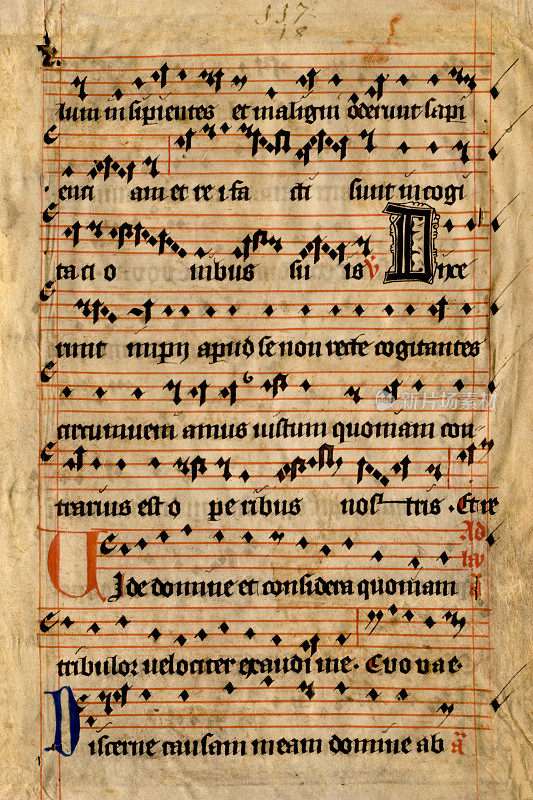 117
18
lum insipientes et maligni oderunt sapi
enci am et re i fa cti sunt in cogi
ta ci o nibus su is ℣ Dixe
runt impij apud se non recte cogitantes
circumueni amus iustum quoniam con
trarius est o pe ribus nos tris . Et re
Ad
lau
Uide domine et considera quoniam A
tribulor uelociter exaudi me . Euouae .
Discerne causam meam domine ab a
新片场图库